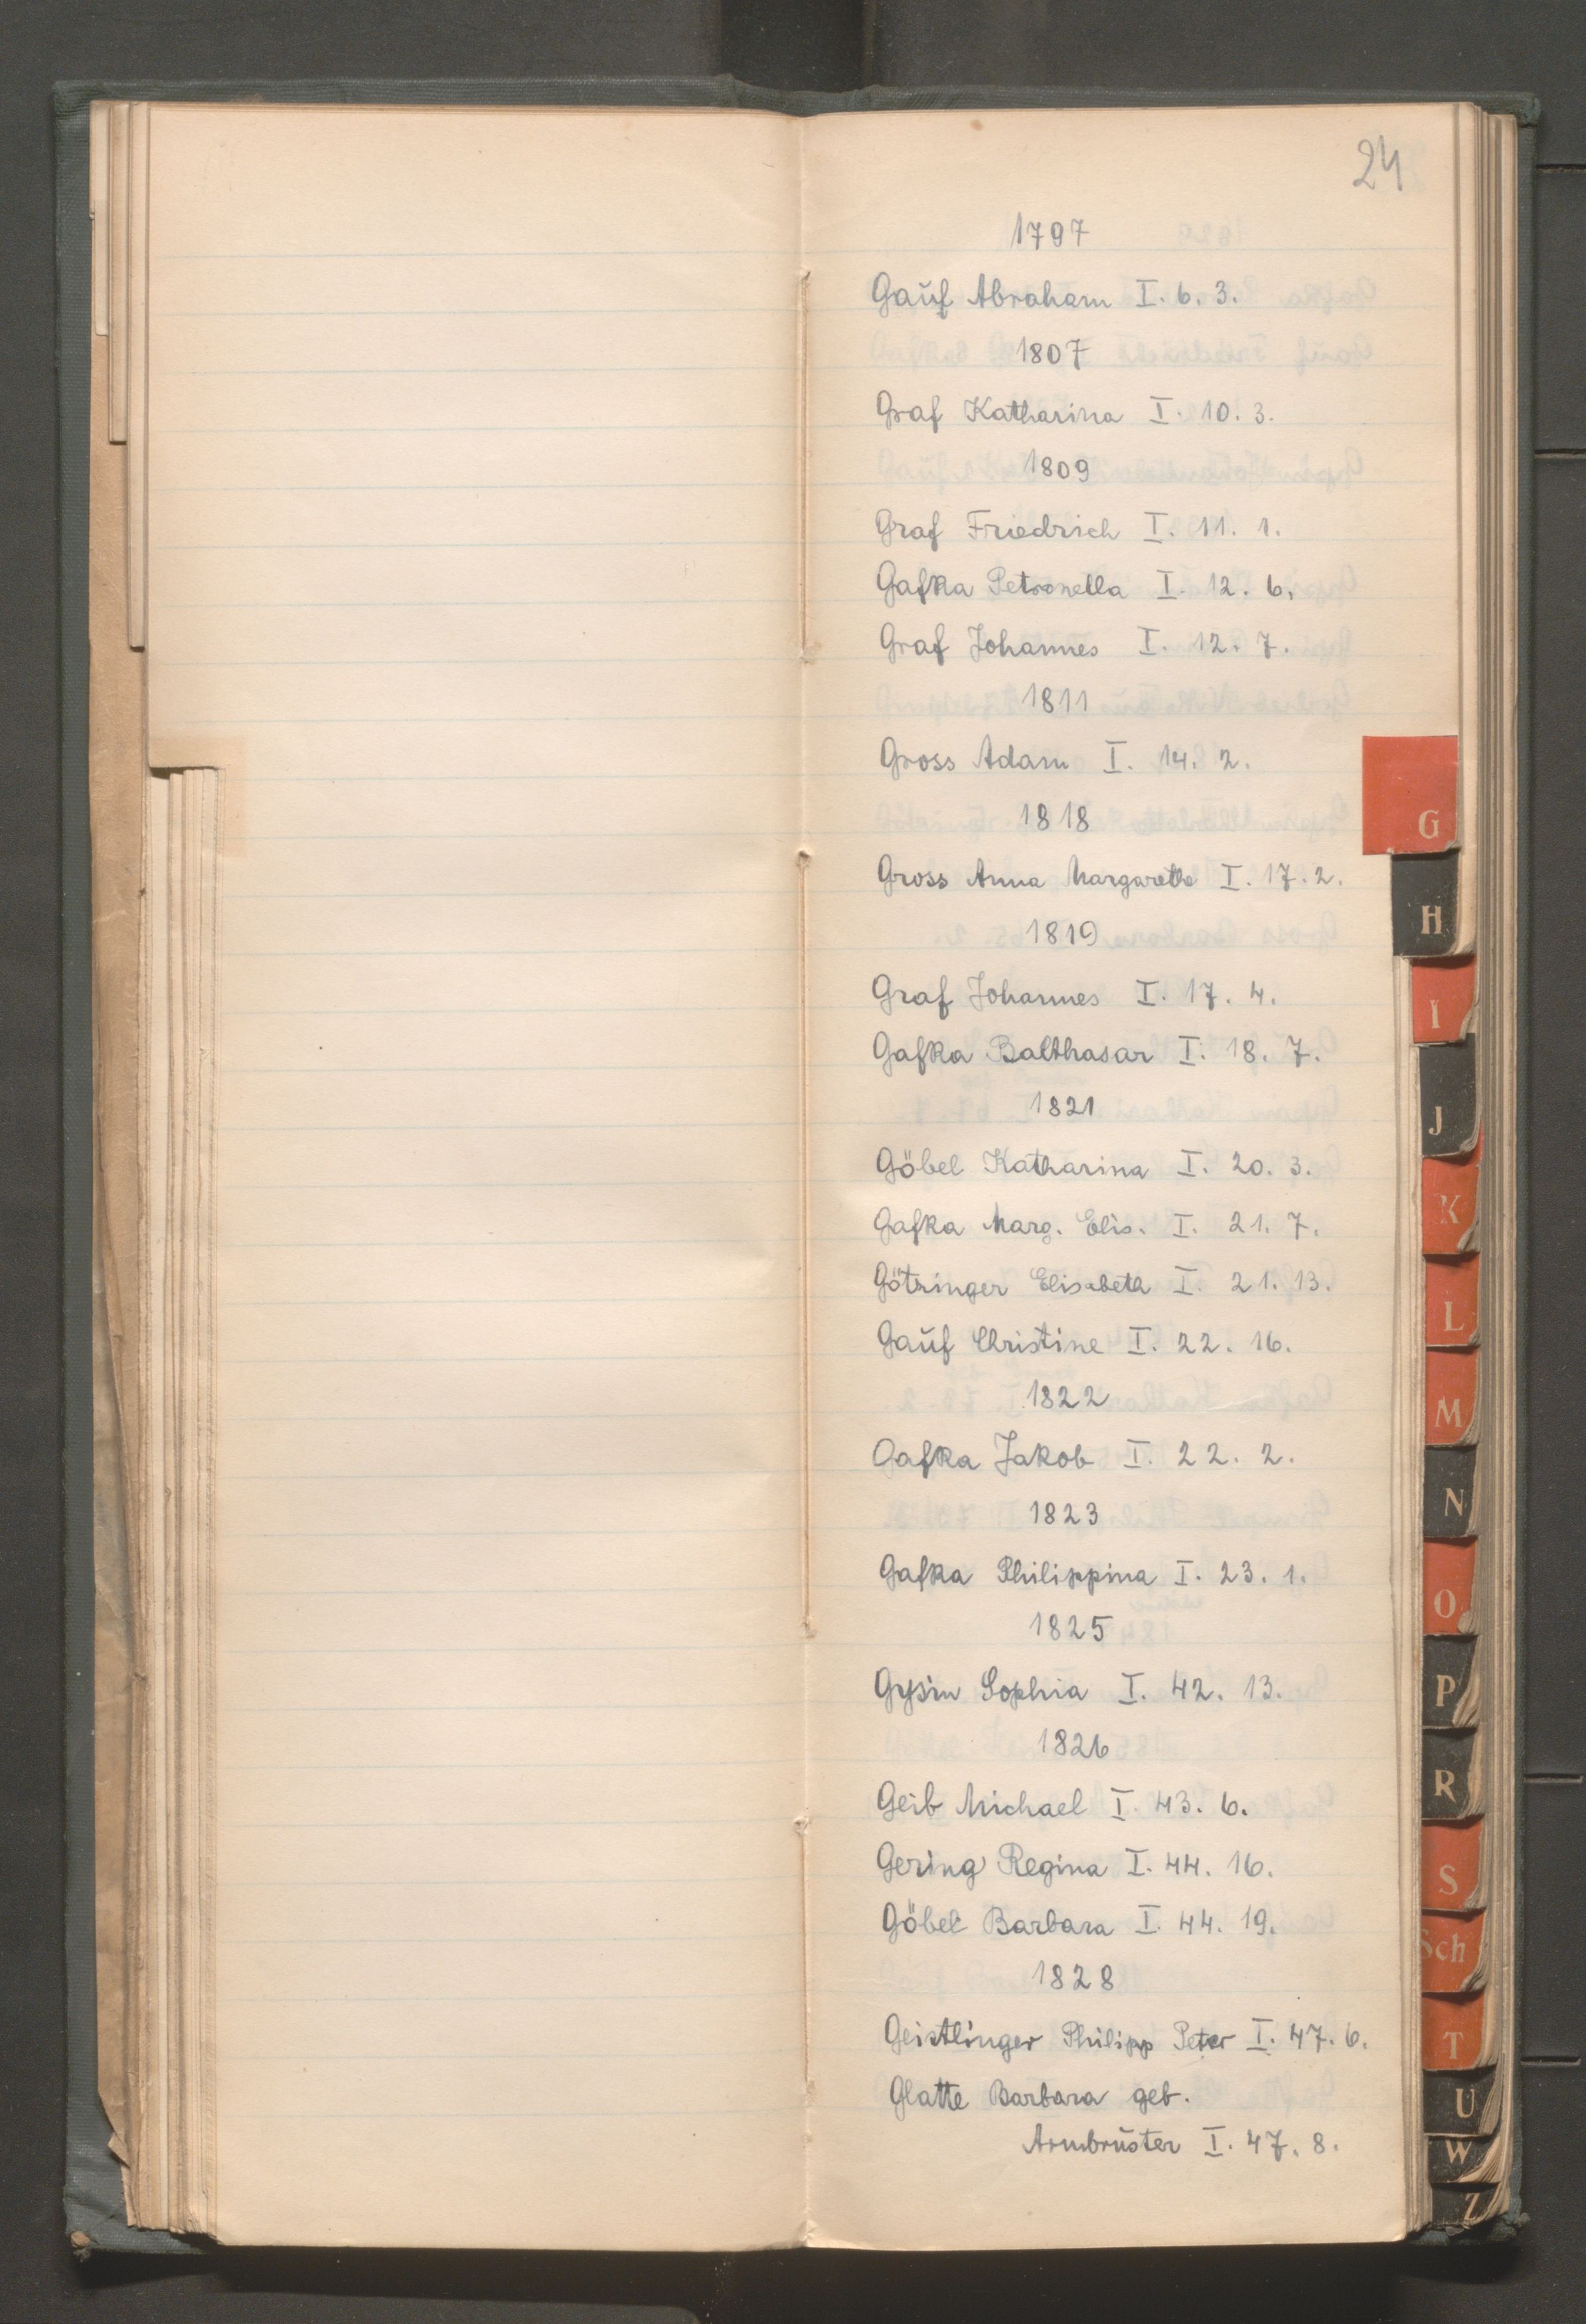 24
1797
Gaŭf Abraham I. 6. 3.
1807
Graf Katharina I. 10. 3.
1809
Graf Friedrich I. 11. 1.
Gafka Petronella I. 12. 6.
Graf Johannes I. 12. 7.
1811
Gross Adam I. 14. 2.
1818
Gross Anna Margaretha I. 17. 2.
1819
Graf Johannes I. 17. 4.
Gafka Balthasar I. 18. 7.
1821
Göbel Katharina I. 20. 3.
Gafka Marg. Elis. I. 21. 7.
Götzinger Elisabeth I. 21. 13.
Gaŭf Christine I. 22. 16.
1822
Gafka Jakob I. 22. 2.
1823
Gafka Philippina I. 23. 1.
1825
Gysin Sophia I. 42. 13.
1826
Geib Michael I. 43. 6.
Gering Regina I. 44. 16.
Göbel Barbara I. 44. 19.
1828
Geistlinger Philipp Peter I. 47. 6.
Glatte Barbara geb.
Armbrŭster I. 47. 8.
G
H
I
J
K
L
M
N
O
P
R
S
Sch
T
U
W
Z